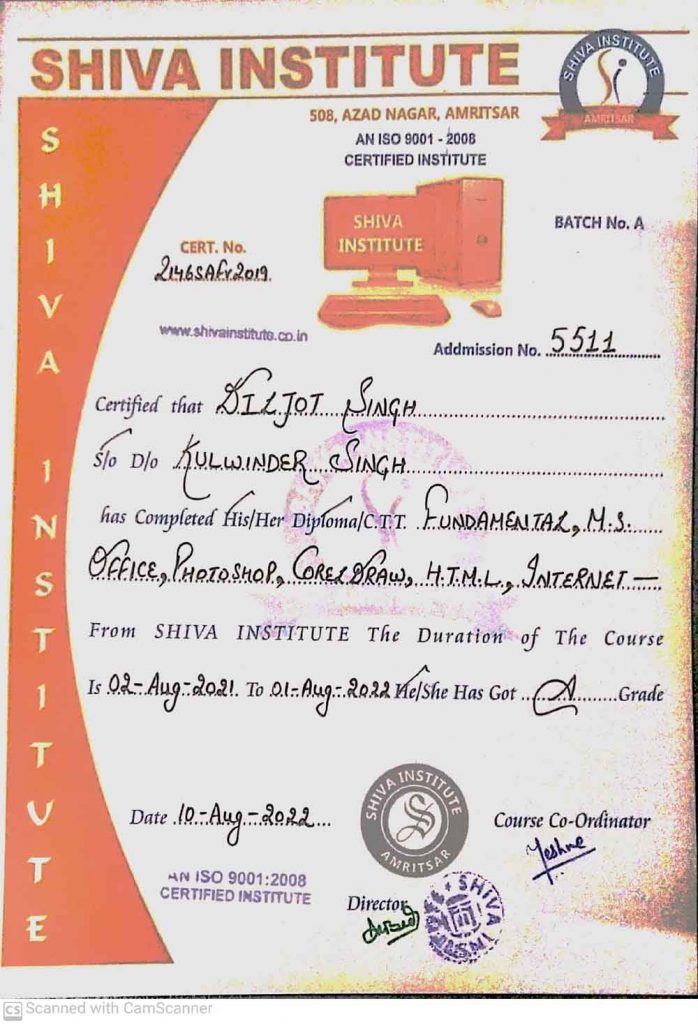 SHIVA INSTITUTE
SHIVA INSTITUTE
AMRITSAR
508, AZAD NAGAR, AMRITSAR
AN ISO 9001 - 2008
CERTIFIED INSTITUTE
SHIVA INSTITUTE
SHIVA
INSTITUTE
BATCH No. A
CERT. No.
2146SAFv2019
www.shivainstitute.co.in
Addmission No. 5511
Certified that DILJOT SINGH
S/o D/o KULWINDER SINGH
has Completed His/Her Diploma/C.T.T. FUNDAMENTAL, M.S.
OFFICE, PHOTOSHOP, COREL DRAW, H.T.M.L., INTERNET —
From SHIVA INSTITUTE The Duration of The Course
Is 02-Aug-2021. To 01-Aug-2022 He/She Has Got A Grade
Date 10-Aug-2022
SHIVA INSTITUTE
S
AMRITSAR
Course Co-Ordinator
AN ISO 9001:2008
CERTIFIED INSTITUTE
Director
SHIVA
CS Scanned with CamScanner